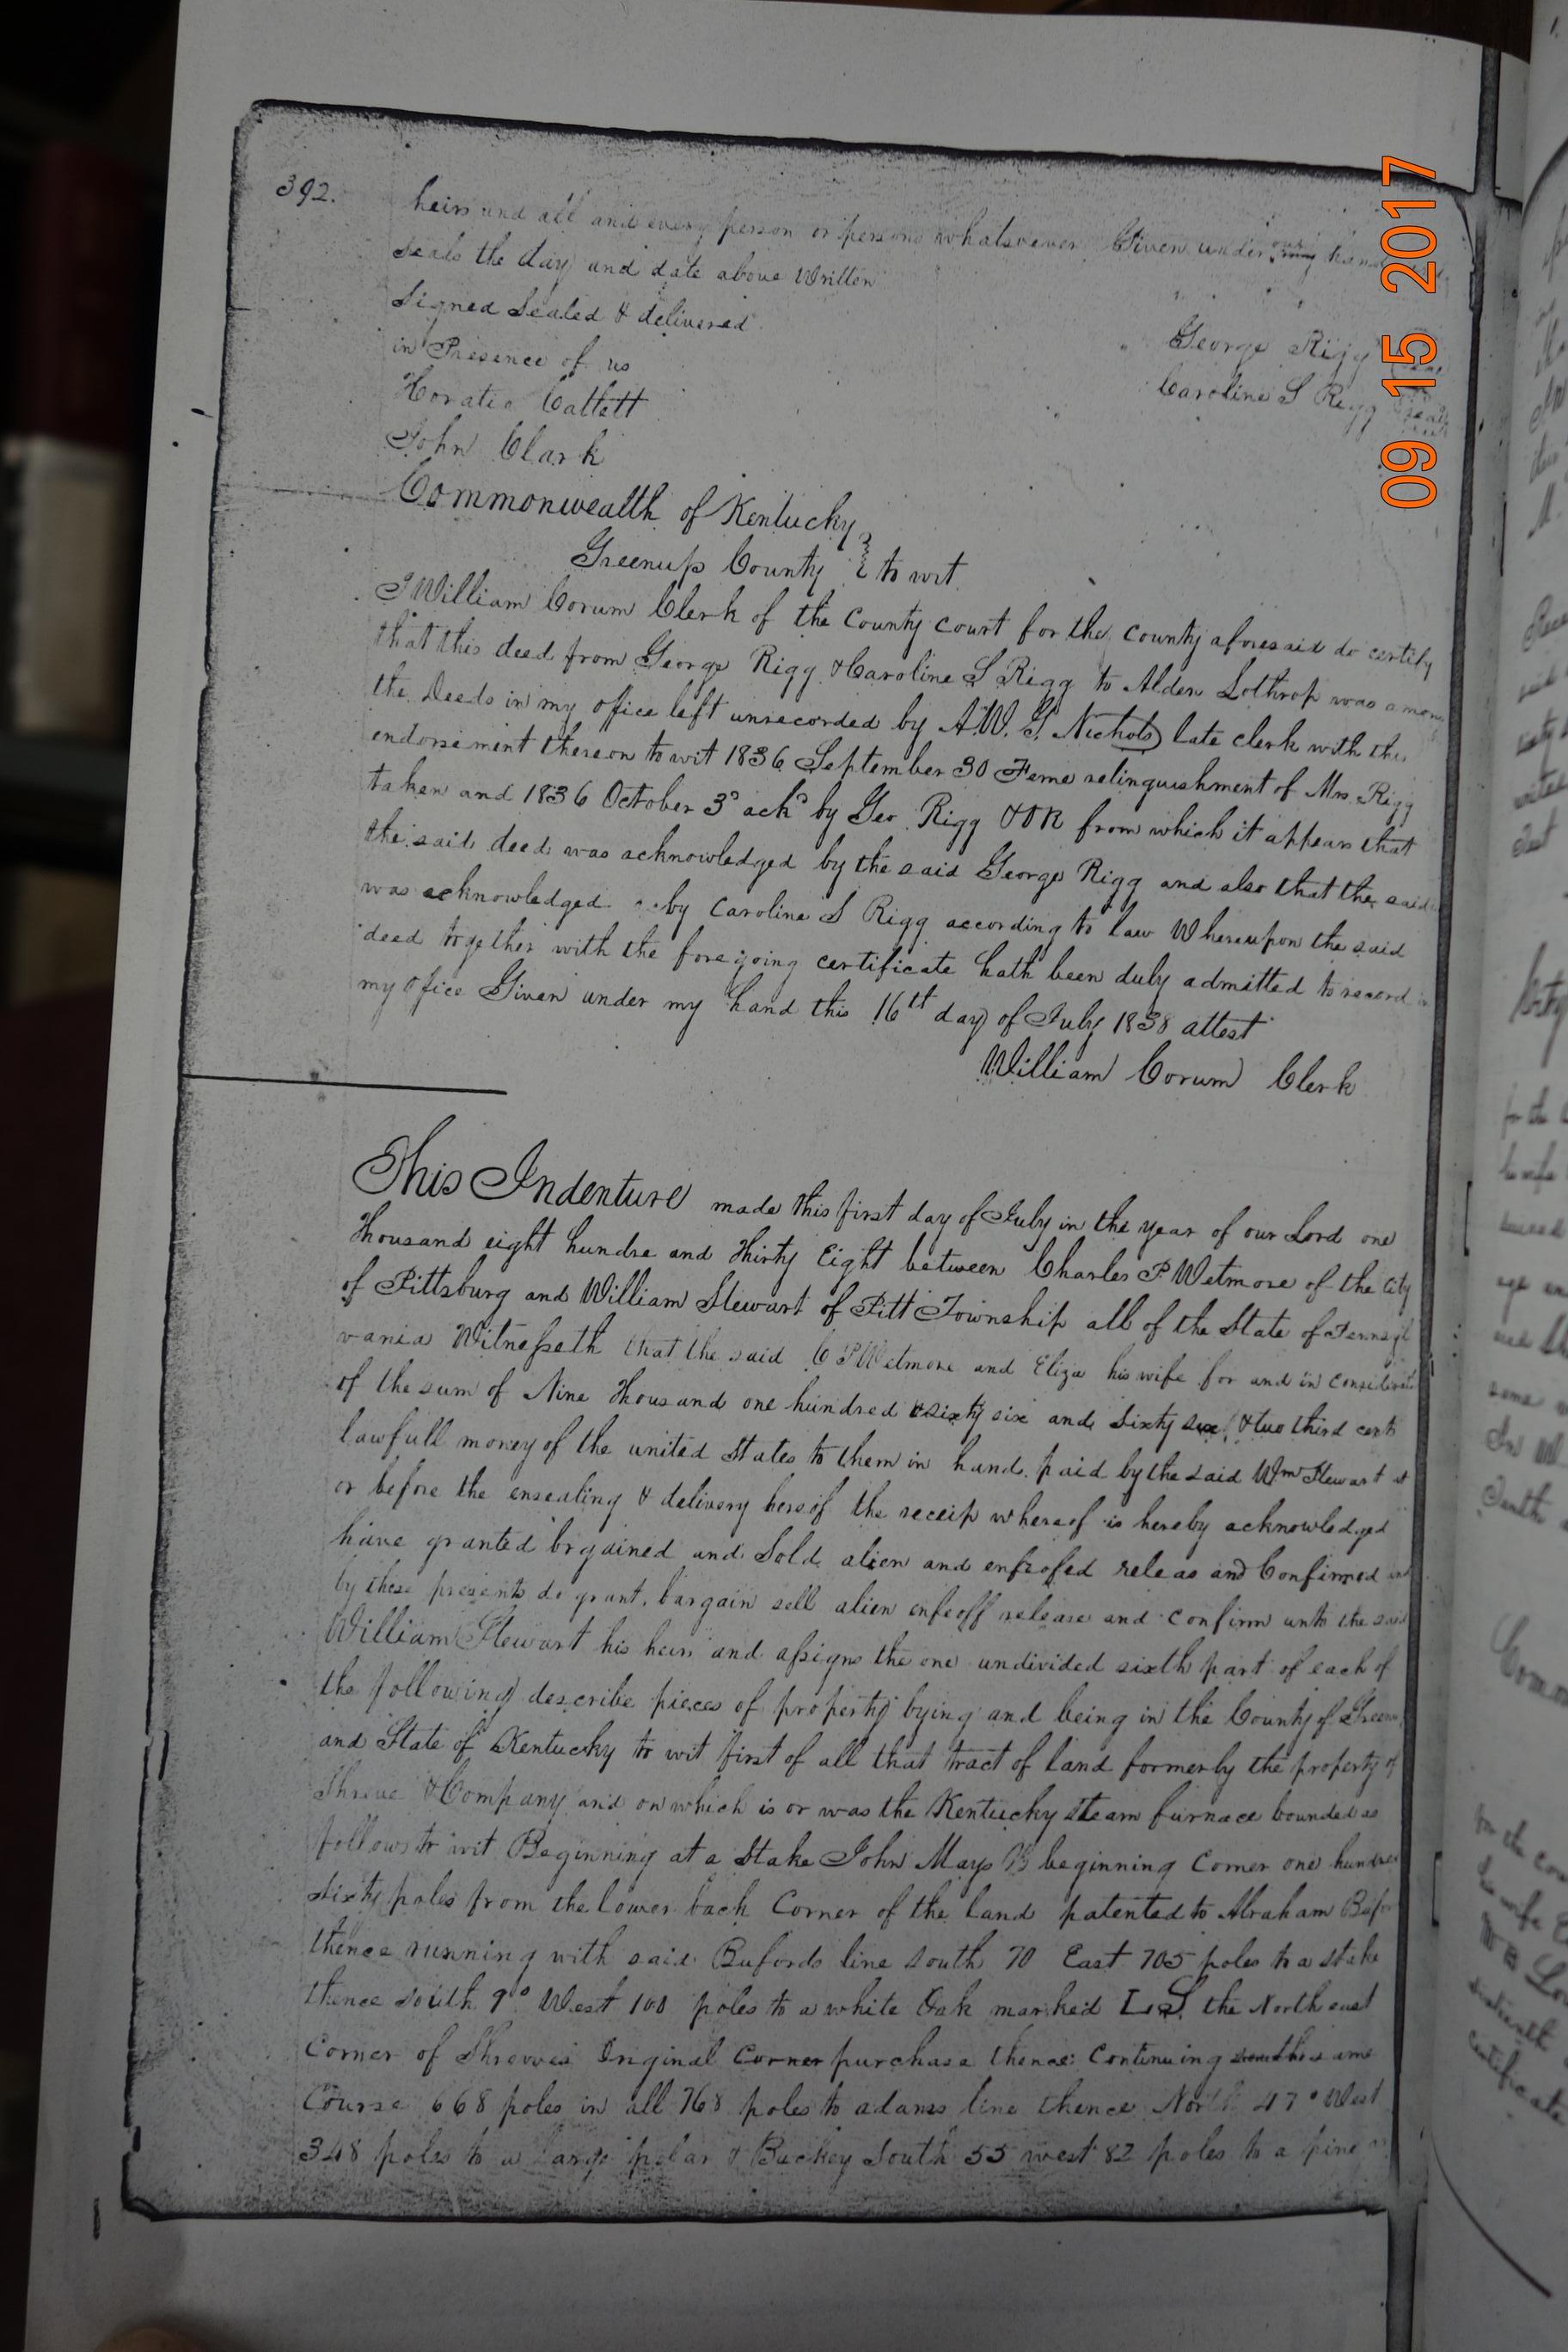 392.
heirs and all and every person or persons whatsoever Given under our
seals the day and date above Written
Signed Sealed & delivered
in Presence of us
George Rigg
Horatio Catlett
Caroline S Rigg seal
John Clark
Commonwealth of Kentucky
Greenup County } to wit
I William Corum Clerk of the County Court for the County aforesaid do certify
that this deed from George Rigg & Caroline S Rigg to Alden Lothrop was among
the Deeds in my office left unrecorded by A. W. G. Nichols late clerk with the
endorsement thereon to wit 1836 September 30 Feme relinquishment of Mrs. Rigg
taken and 1836 October 3d ackd by Geo Rigg & O R from which it appears that
the said deed was acknowledged by the said George Rigg and also that the said
was acknowledged by Caroline S Rigg according to law Whereupon the said
deed together with the foregoing certificate hath been duly admitted to record in
my office Given under my hand this 16th day of July 1838 attest
William Corum Clerk
This Indenture made this first day of July in the year of our Lord one
Thousand eight hundre and Thirty Eight between Charles P Wetmore of the City
of Pittsburg and William Stewart of Pitt Township all of the State of Pennsyl
vania Witnesseth that the said C P Wetmore and Eliza his wife for and in considerat
of the sum of Nine Thousand one hundred & sixty six and sixty six & two third cents
lawfull money of the united States to them in hand paid by the said Wm Stewart at
or before the ensealing & delivery hereof the receip whereof is hereby acknowledged
have granted brgained and Sold alien and enfeofed releas and Confirmed and
by these presents do grant, bargain sell alien enfeoff release and confirm unto the said
William Stewart his heirs and assigns the one undivided sixth part of each of
the following describe pieces of property bying and being in the County of Greenu
and State of Kentucky to wit first of all that tract of land formerly the property of
Shreve & Company and on which is or was the Kentucky Steam furnace bounded as
follows to wit Beginning at a Stake John Mays beginning Corner one hundred
sixty poles from the lower back Corner of the land patented to Abraham Bufor
thence running with said Bufords line South 70 East 705 poles to a stake
thence south 9° West 100 poles to a white Oak marked L S. the North east
Corner of Shreves Original Corner purchase thence Continuing same
Course 668 poles in all 768 poles to adams line thence North 47° West
348 poles to a large polar & Buckey South 55 west 82 poles to a pine
09 15 2017